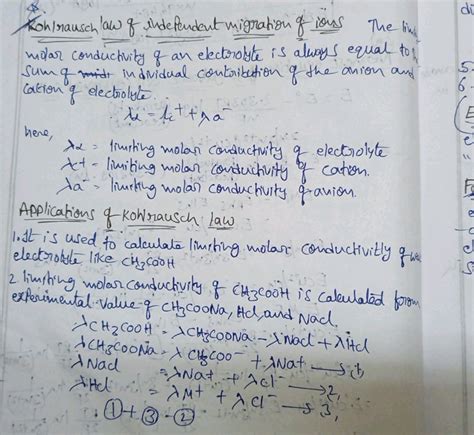 Kohlrausch law of independent migration of ions The
molar conductivity of an electrolyte is always equal to
sum of individual contribution of the anion and
cation of electrolyte.
λα = λc+ + λa-
here,
λα = limiting molar conductivity of electrolyte
λc+ = limiting molar conductivity of cation.
λa- = limiting molar conductivity of anion.
Applications of Kohlrausch law
1. It is used to calculate limiting molar conductivitly of
electrolyte like CH3COOH
2 limiting molar conductivity of CH3COOH is calculated form
experimental value of CH3COONa, Hcl and Nacl.
λCH3COOH = λCH3COONa - λNacl + λHcl
λCH3COONa = λCH3COO- + λNa+ → 1,
λNacl = λNa+ + λCl- → 2,
λHcl = λH+ + λCl- → 3,
① + ③ - ②
5.
6.